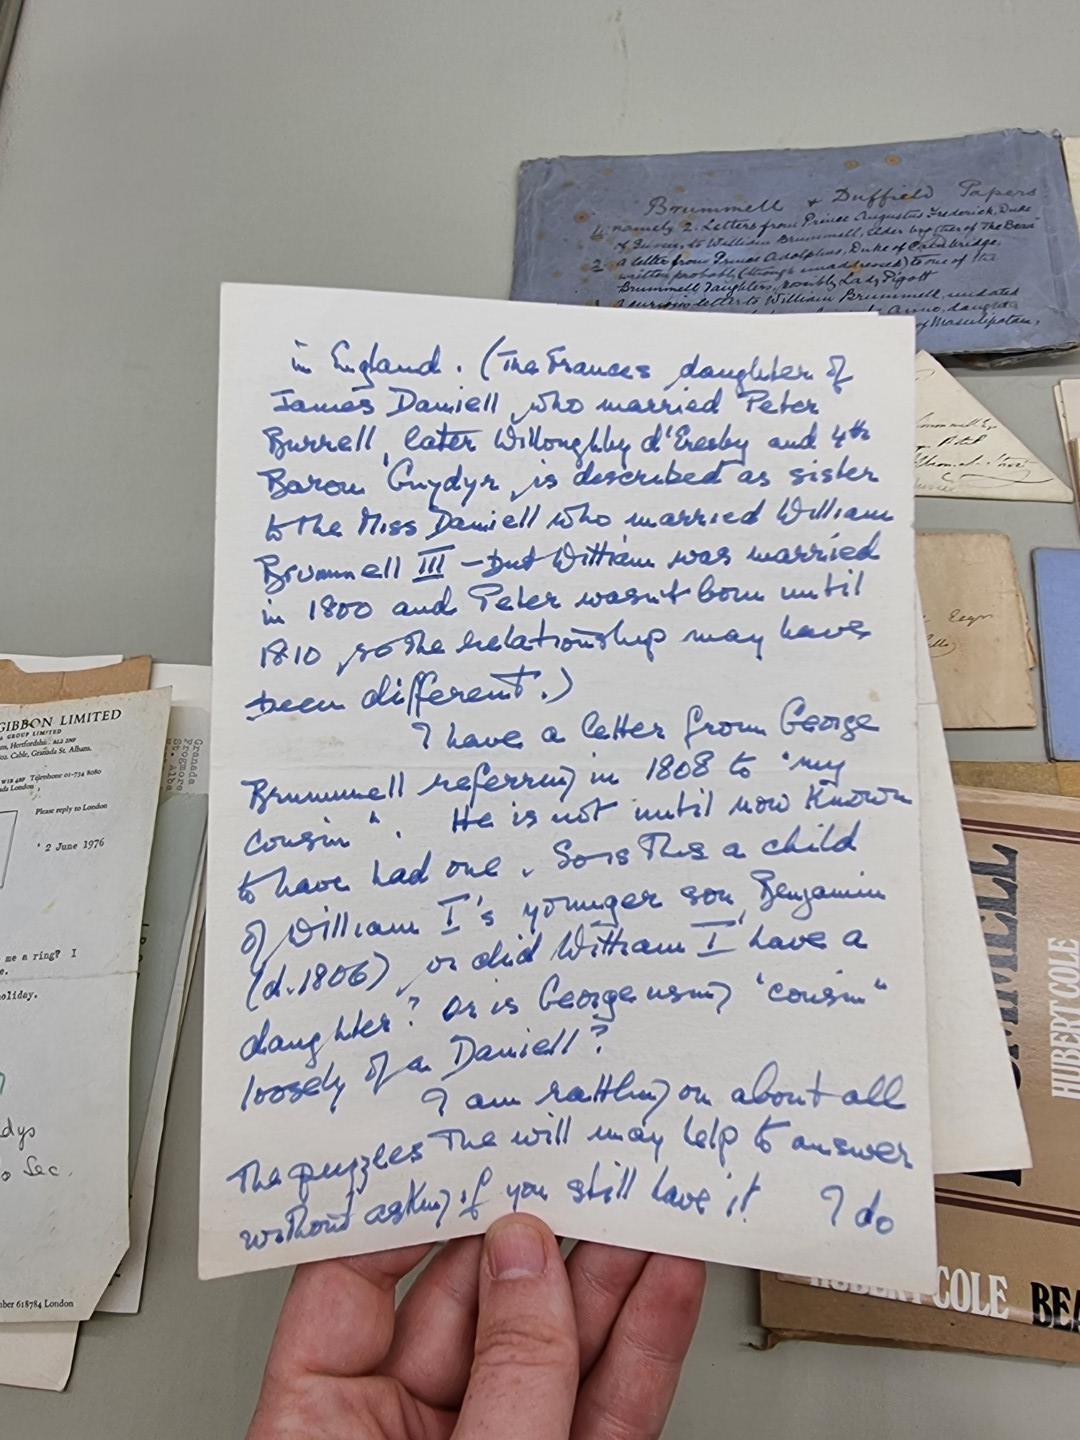 Brummell & Duffield Papers
1. namely 2. Letters from Prince Augustus Frederick, Duke
of Sussex, to William Brummell, elder brother of The Beau
2 a letter from Prince Adolphus, Duke of Cambridge,
written probably (though unaddressed) to one of the
Brummell daughters, possibly Lady Pigott
a curious letter to William Brummell, undated
of Masulipatam,
in England. (The Frances daughter of
James Daniell, who married Peter
Burrell, later Willoughby d'Eresby and 4th
Baron Gwydyr, is described as sister
to the Miss Daniell who married William
Brummell III – but William was married
in 1800 and Peter wasn't born until
1810, so the relationship may have
been different.)
I have a letter from George
Brummell referring in 1808 to "my
cousin". He is not until now known
to have had one. So is this a child
of William I's younger son, Benjamin
(d. 1806), or did William I have a
daughter? Or is George using "cousin"
loosely of a Daniell?
I am rattling on about all
the puzzles the will may help to answer
without asking if you still have it! I do
GIBBON LIMITED
GROUP LIMITED
Hertfordshire AL2 2NF
Cable, Granada St. Albans.
W1R 4BP Telephone 01-734 8080
London
Please reply to London
2 June 1976
me a ring? I
e.
holiday.
Granada
Frogmore
St. Alba
Sec.
618784 London
Esqr
HUBERT COLE
HUBERT COLE BEA